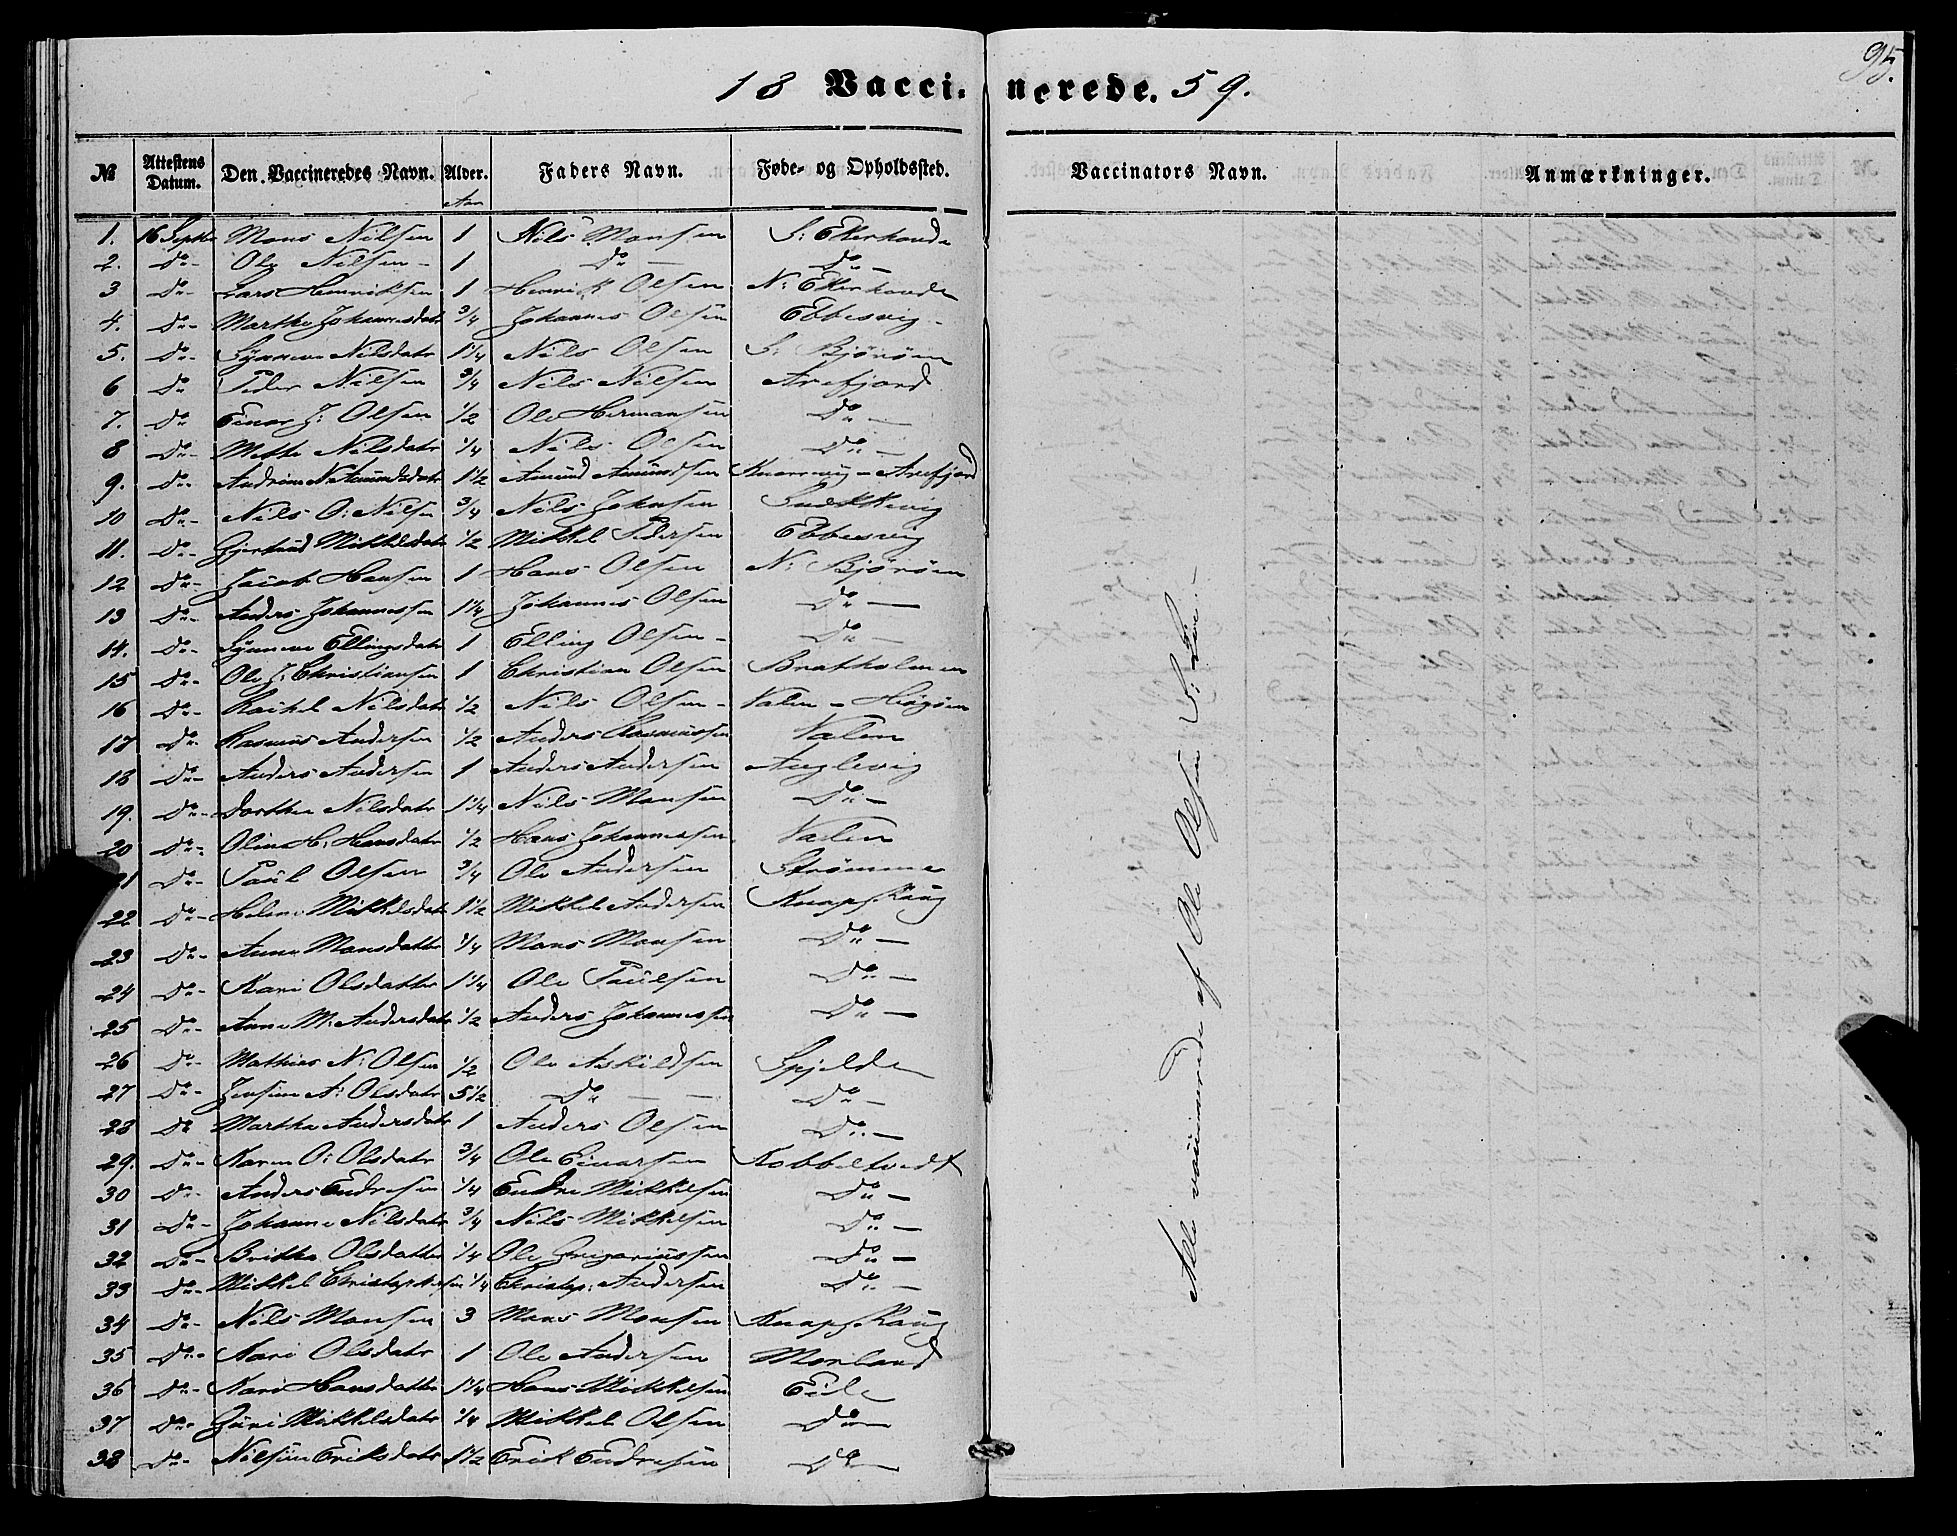 95.
18 Vaccinerede. 59.
№ Attestens Datum. Den Vaccineredes Navn. Alder. Faders Navn. Føde- og Opholdssted. Vaccinators Navn. Anmærkninger.
Aar
1. 16 Septbr Mons Nilsen 1 Nils Monsen S: Ekerhovde
2. Do- Ole Nilsen - 1 Do - Do -
3 Do- Lars Henriksen 1 Henrik Olsen N: Ekerhovde
4. Do- Marthe Johannesdatr 3/4 Johannes Olsen Ebbesvig -
5. Do- Synneve Nilsdatr 1 1/4 Nils Olsen S: Bjørøen
6 Do Peder Nilsen 3/4 Nils Nilsen Arefjord
7. Do Einar J: Olsen 1/2 Ole Hermansen Do -
8 Do- Mette Nilsdatr 1/4 Nils Olsen Do -
9. Do- Andrine N Amundsdatr 1 1/2 Amund Amundsen Knarrevig - Arefjord
10 Do- Nils O: Nilsen 3/4 Nils Johnsen
11. Do- Gjertrud Mikkelsdatr 1/2 Mikkel Pedersen Ebbesvig
12 Do- Jacob Hansen 1 Hans Olsen N: Bjørøen
13 Do- Anders Johannessen 1 1/4 Johannes Olsen Do -
14. Do- Synneve Ellingsdatr 1 Elling Olsen - Do -
15 Do- Ole J: Christiansen 1 Christian Olsen Bratholmen
16 Do- Rachel Nilsdatr 1/2 Nils Olsen - Valen - Høgøen
17 Do- Rasmus Andersen 1/2 Anders Rasmussen Valen
18 Do- Anders Andersen 1 Anders Andersen Anglevig
19. Do- Dorthea Nilsdatr 1 1/4 Nils Monsen Do -
20 Do- Oline H: Hansdatr 1/2 Hans Johannessen Valen
21 Do- Paul Olsen 3/4 Ole Andersen Strømme
22 Do- Helene Mikkelsdatr 1 1/2 Mikkel Andersen Knapskaug
23 Do- Anna Monsdatter 1/4 Mons Monsen Do -
24 Do- Kari Olsdatter 1 1/4 Ole Paulsen Do -
25 Do- Anne M: Andersdatr 1/2 Anders Johannessen Do -
26 Do- Mathias N: Olsen 1/2 Ole Askildsen Spjelde
27 Do- Jensine A: Olsdatr 5 1/2 Do - - Do -
28 Do Martha Andersdatr 1 Anders Olsen Do -
29. Do- Karen O: Olsdatr 3/4 Ole Einarsen Kobbeltvedt
30 Do- Anders Endresen 1/4 Endre Mikkelsen Do -
31 Do- Johanne Nilsdatr 3/4 Nils Mikkelsen Do -
32 Do- Britha Olsdatter 1/4 Ole Grigoriussen Do -
33 Do- Mikkel Christophersen 1/4 Christop: Andersen Do -
34 Do- Nils Monsen 3 Mons Monsen Knapskaug
35 Do- Kari Olsdatr 1 Ole Andersen Morland
36 Do- Kari Hansdatter 1 1/4 Hans Mikkelsen Eide
37 Do- Guri Mikkelsdatr 1/4 Mikkel Olsen Do
38 Do- Nilsine Eriksdatr 1 1/2 Erik Endresen Do
Alle vaccinerede af Ole Olsen